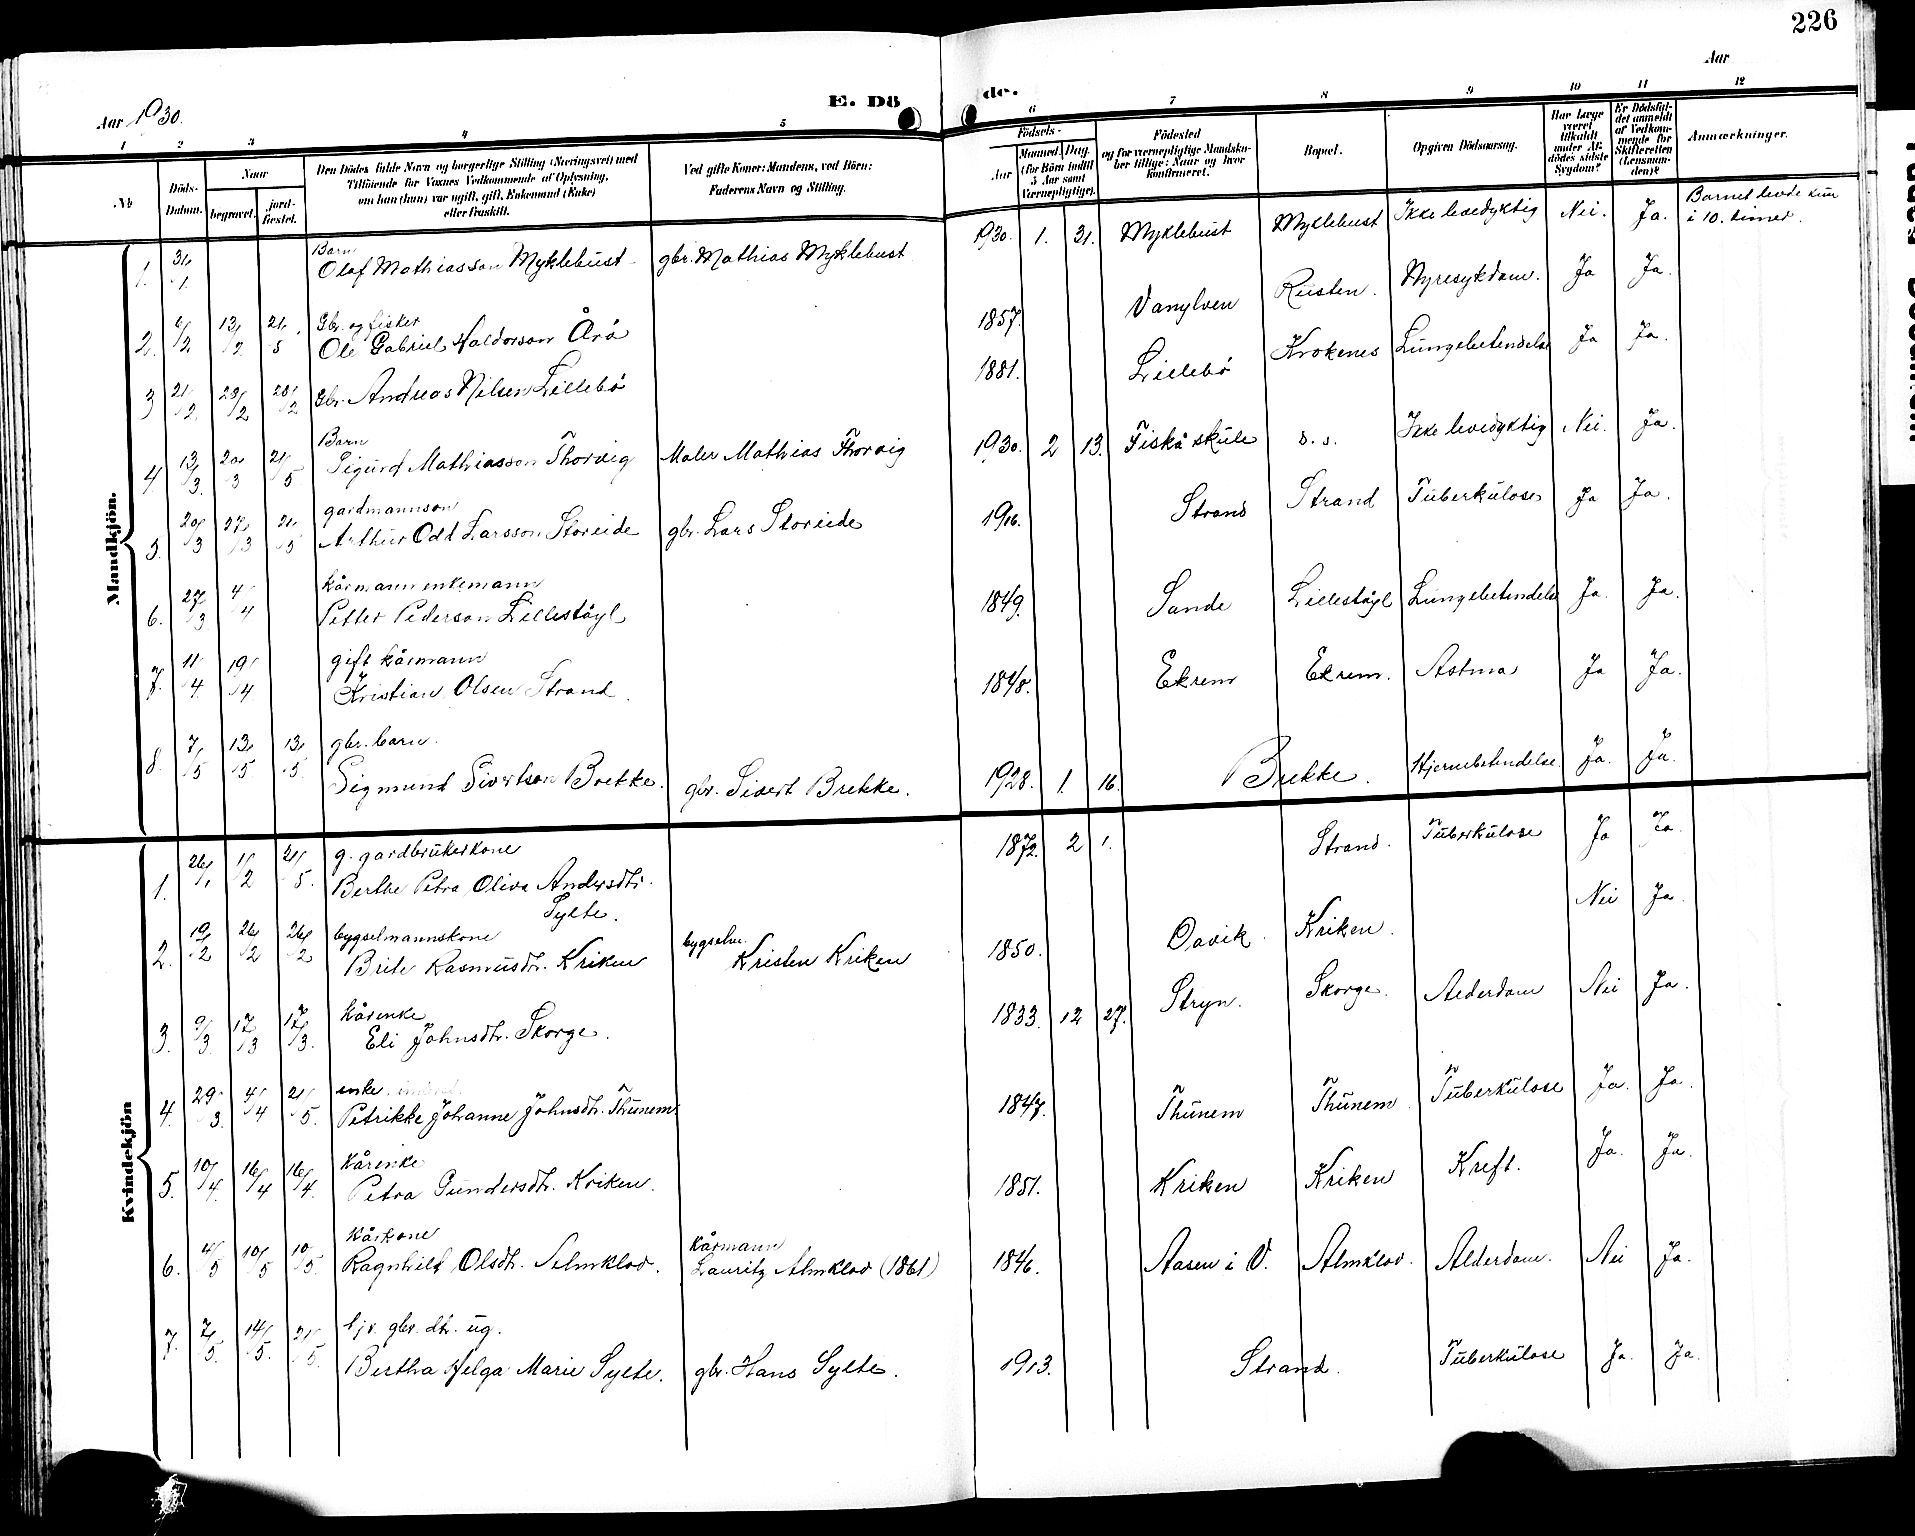 226
Aar 1930.
E. Dö
de.
Aar
1 2 3 4 5 6 7 8 9 10 11 12
No
Döds-Datum.
Naar
begravet.
jord-fæstet.
Den Dödes fulde Navn og borgerlige Stilling (Næringsvei) med
Tilföiende for Voxnes Vedkommende af Oplysning,
om han (hun) var ugift, gift, Enkemand (Enke)
eller fraskilt.
Ved gifte Koner: Mandens, ved Börn:
Faderens Navn og Stilling.
Födsels-
Aar
Maaned. Dag.
(for Börn indtil
5 Aar samt
Værnepligtige).
Födested
og for værnepligtige Mandskaber tillige: Naar og hvor
konfirmeret.
Bopæl.
Opgiven Dödsaarsag.
Har Læge
været
tilkaldt
under Afdödes sidste
Sygdom?
Er Dödsfaldet anmeldt
af Vedkommende for
Skifteretten
(Lensmanden)?
Anmærkninger.
Mandkjön.
1. 31/1 Barn Olaf Mathiasson Myklebust gbr. Mathias Myklebust 1930. 1. 31. Myklebust Myklebust Ikke levedyktig Nei. Ja. Barnet levde kun i 10. timer.
2. 6/2 13/2 21/5 Gbr. og fisker Ole Gabriel Haldorson Årö 1857. Vanylven Rusten. Nyresykdom. Ja Ja.
3 21/2. 28/2 28/2 Gbr. Andreas Nilsen Lillebö 1881. Lillebö Krokenes Lungebetendelse Ja Ja.
4 13/3. 20/3 21/5 Barn Sigurd Mathiasson Thorvig Maler Mathias Thorvig 1930. 2 13. Fiskå skule d. s. Ikke levedyktig Nei. Ja.
5. 20/3 27/3 21/5 gardmannson Arthur Odd Larsson Storeide gbr. Lars Storeide 1916. Strand Strand Tuberkulose Ja Ja.
6. 27/3 4/4 kårmann enkemann Petter Pederson Lillestöyl 1849. Sande Lillestöyl Lungebetendelse Ja Ja.
7. 11/4. 19/4 gift kårmann Kristian Olsen Strand. 1848. Ekrem Ekrem. Astma Ja Ja.
8. 7/5 13/5. 13/5. gbr. barn. Sigmund Sivertson Brekke. gbr. Sivert Brekke. 1928. 1. 16. Brekke. Hjernebetendelse. Ja. Ja.
Kvindekjön
1. 26/1 1/2 21/5. g. gardbrukerkone Berthe Petra Oliva Andersdtr. Sylte. 1872. 2 1. Strand. Tuberkulose Ja Ja.
2. 19/2 26/2 26/2 bygselmannskone Brite Rasmusdtr. Kriken bygselm. Kristen Kriken 1850. Davik. Kriken. Nei Ja.
3. 9/3. 17/3 17/3. kårenke Eli Johnsdtr. Skorge. 1833. 12 27. Stryn. Skorge. Alderdom Nei Ja.
4. 29/3. 4/4 21/5. enke. Petrikke Johanne Johnsdtr. Thunem 1847. Thunem Thunem. Tuberkulose Ja. Ja.
5. 10/4. 16/4 16/4. kårenke Petra Gundersdtr. Kriken. 1851. Kriken Kriken Kreft. Ja. Ja.
6. 4/5 10/5 10/5. kårkone Ragnhild Olsdtr. Almklov. kårmann Lauritz Almklov (1861) 1846. Aasen i V. Almklov. Alderdom. Nei Ja.
7. 7/5. 14/5. 21/5. hjv. gbr. dtr. ug. Bertha Helga Marie Sylte. gbr. Hans Sylte. 1913. Strand. Tuberkulose Ja. Ja.